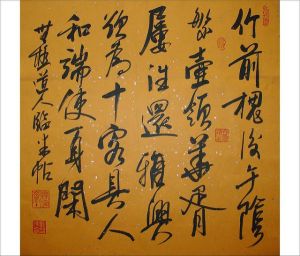 竹前槐後午陰
繁壺領華胥
屢往還雅興
欲為十客具人
和端使一身閑
道人臨米帖